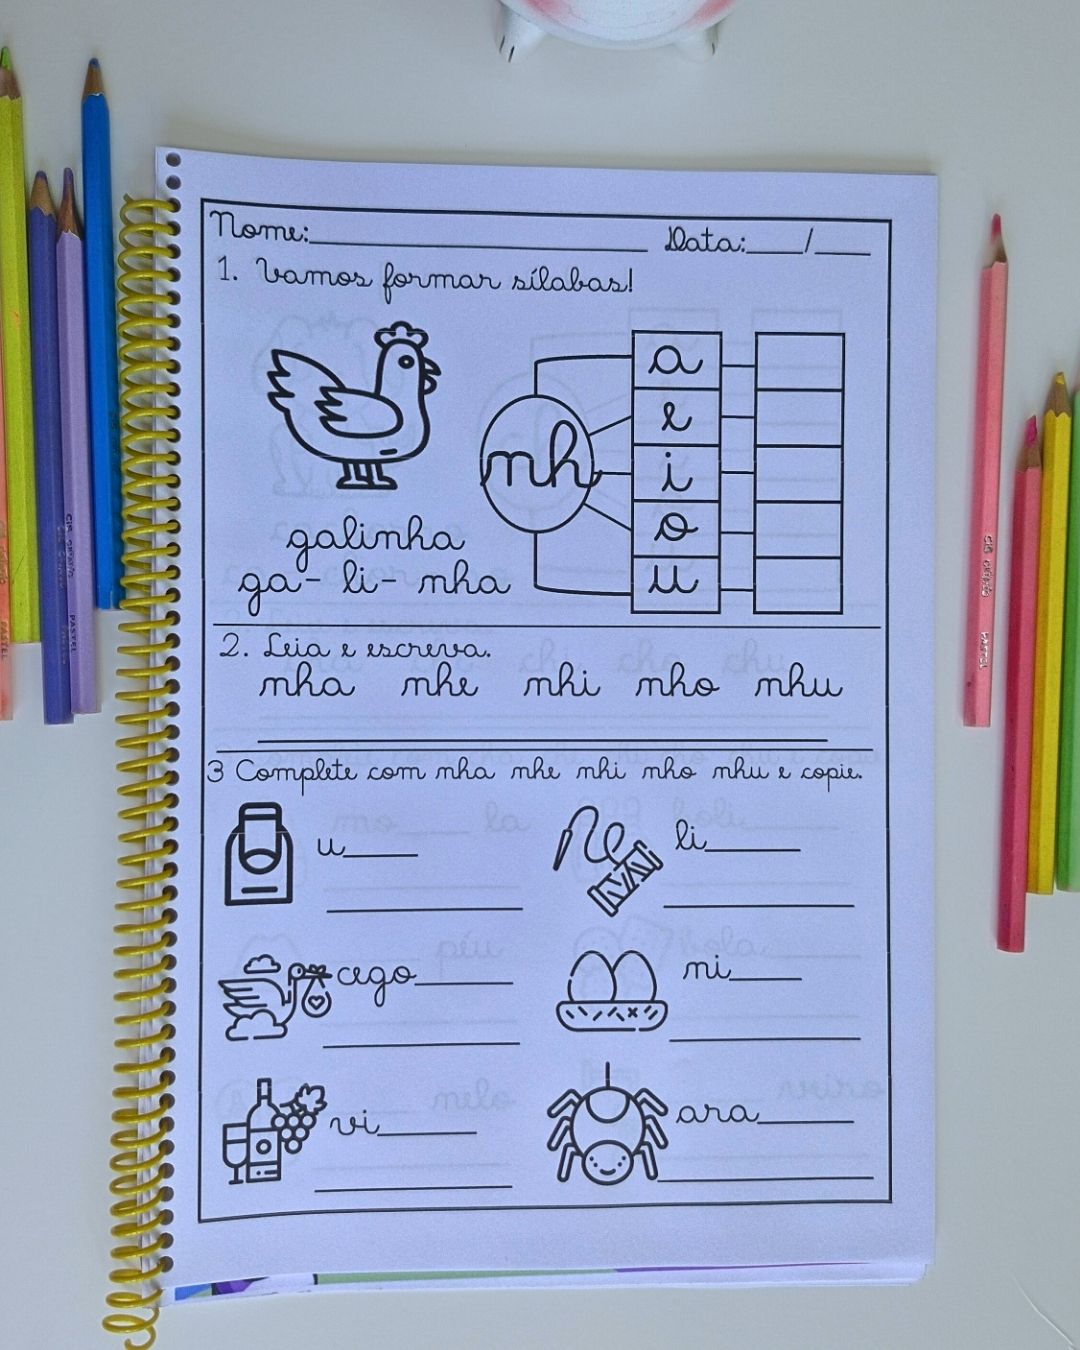 Nome:____________ Data:___/___
1. Vamos formar sílabas!
galinha
ga-li-nha
nh
a
e
i
o
u
2. Leia e escreva.
nha nhe nhi nho nhu
3 Complete com nha nhe nhi nho nhu e copie.
u____ li____
cego____ ni____
vi____ ara____